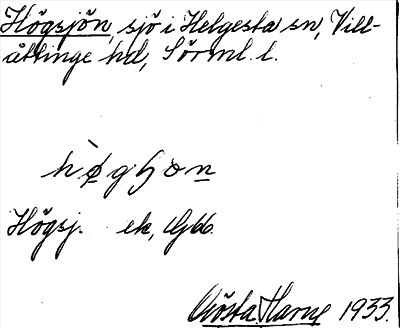 Högsjön, sjö i Helgesta sn, Vill-
åttinge hd, Sörml. l.
Högsj. ek,
Gösta Harup 1933.